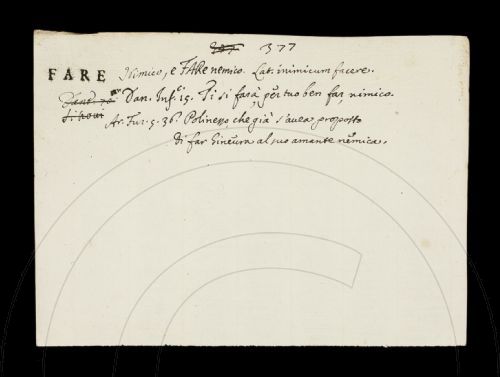 377
FARE Nimico, e FARe nemico. Lat. inimicum facere.
Dan. Inf. 15. Ti si farà, per tuo ben far, nimico.
Ar. Fur. 5. 36. Polinesso, che già s'avea proposto
di far Ginevra al suo amante nemica.